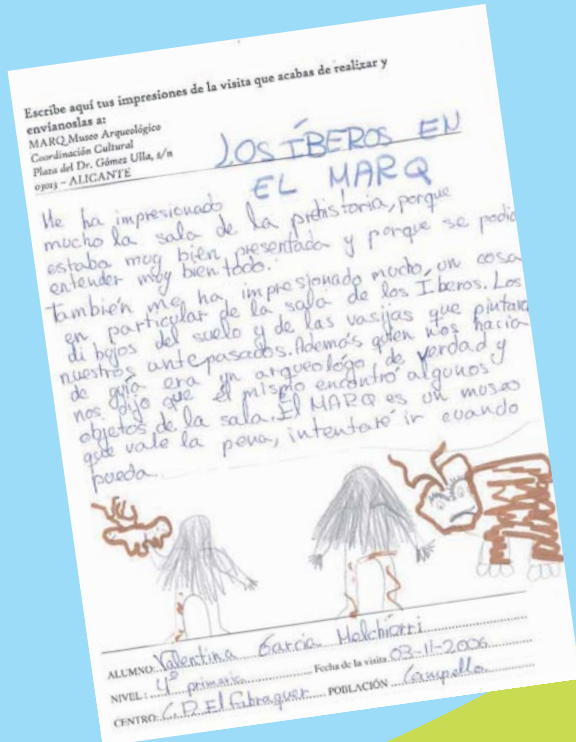 Escribe aquí tus impresiones de la visita que acabas de realizar y
envíanoslas a:
MARQ Museo Arqueológico
Coordinación Cultural
Plaza del Dr. Gómez Ulla, s/n
03013 – ALICANTE
LOS ÍBEROS EN
EL MARQ
Me ha impresionado
mucho la sala de la prehistoria, porque
estaba muy bien presentada y porque se podia
entender muy bien todo.
También me ha impresionado mucho, un cosa
en particular de la sala de los Iberos. Los
dibojos del suelo y de las vasijas que pintaro
nuestros antepasados. Además quien nos hacía
de guía era un arqueológo de verdad y
nos dijo que él mismo encontró algunos
objetos de la sala. El MARQ es un museo
que vale la pena, intentaré ir cuando
pueda.
ALUMNO: Valentina García Melchiorri
NIVEL: 4º primaria Fecha de la visita 03-11-2006
CENTRO: C.P. El Fabraquer POBLACIÓN Campello